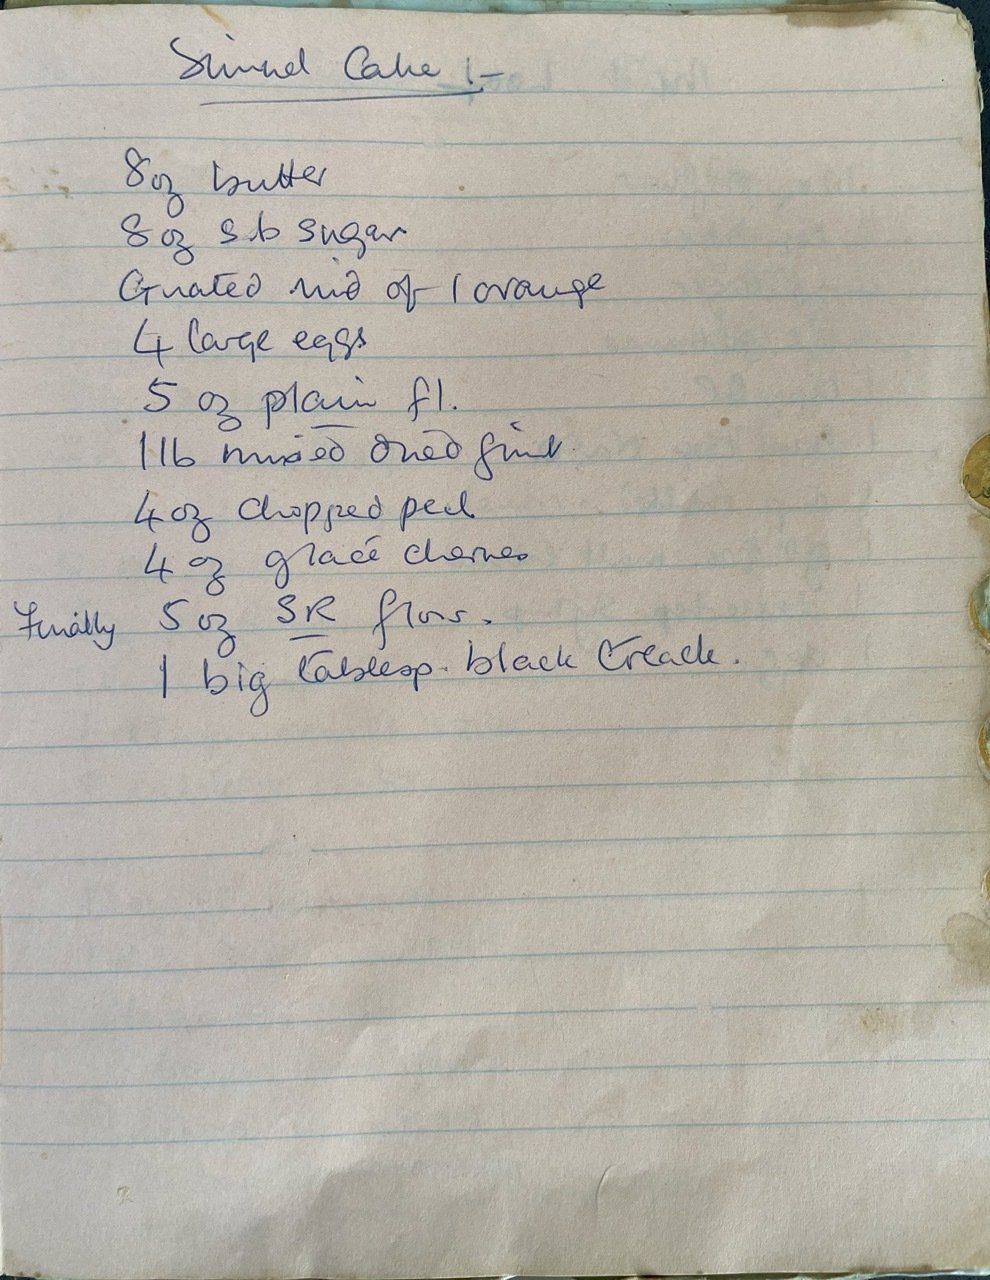 Simnel Cake :-
8oz butter
8 oz s.b sugar
Grated rind of 1 orange
4 large eggs
5 oz plain fl.
1lb mixed dried fruit
4 oz chopped peel
4 oz glacé cherries
Finally 5 oz SR flour.
1 big tablesp. black treacle.